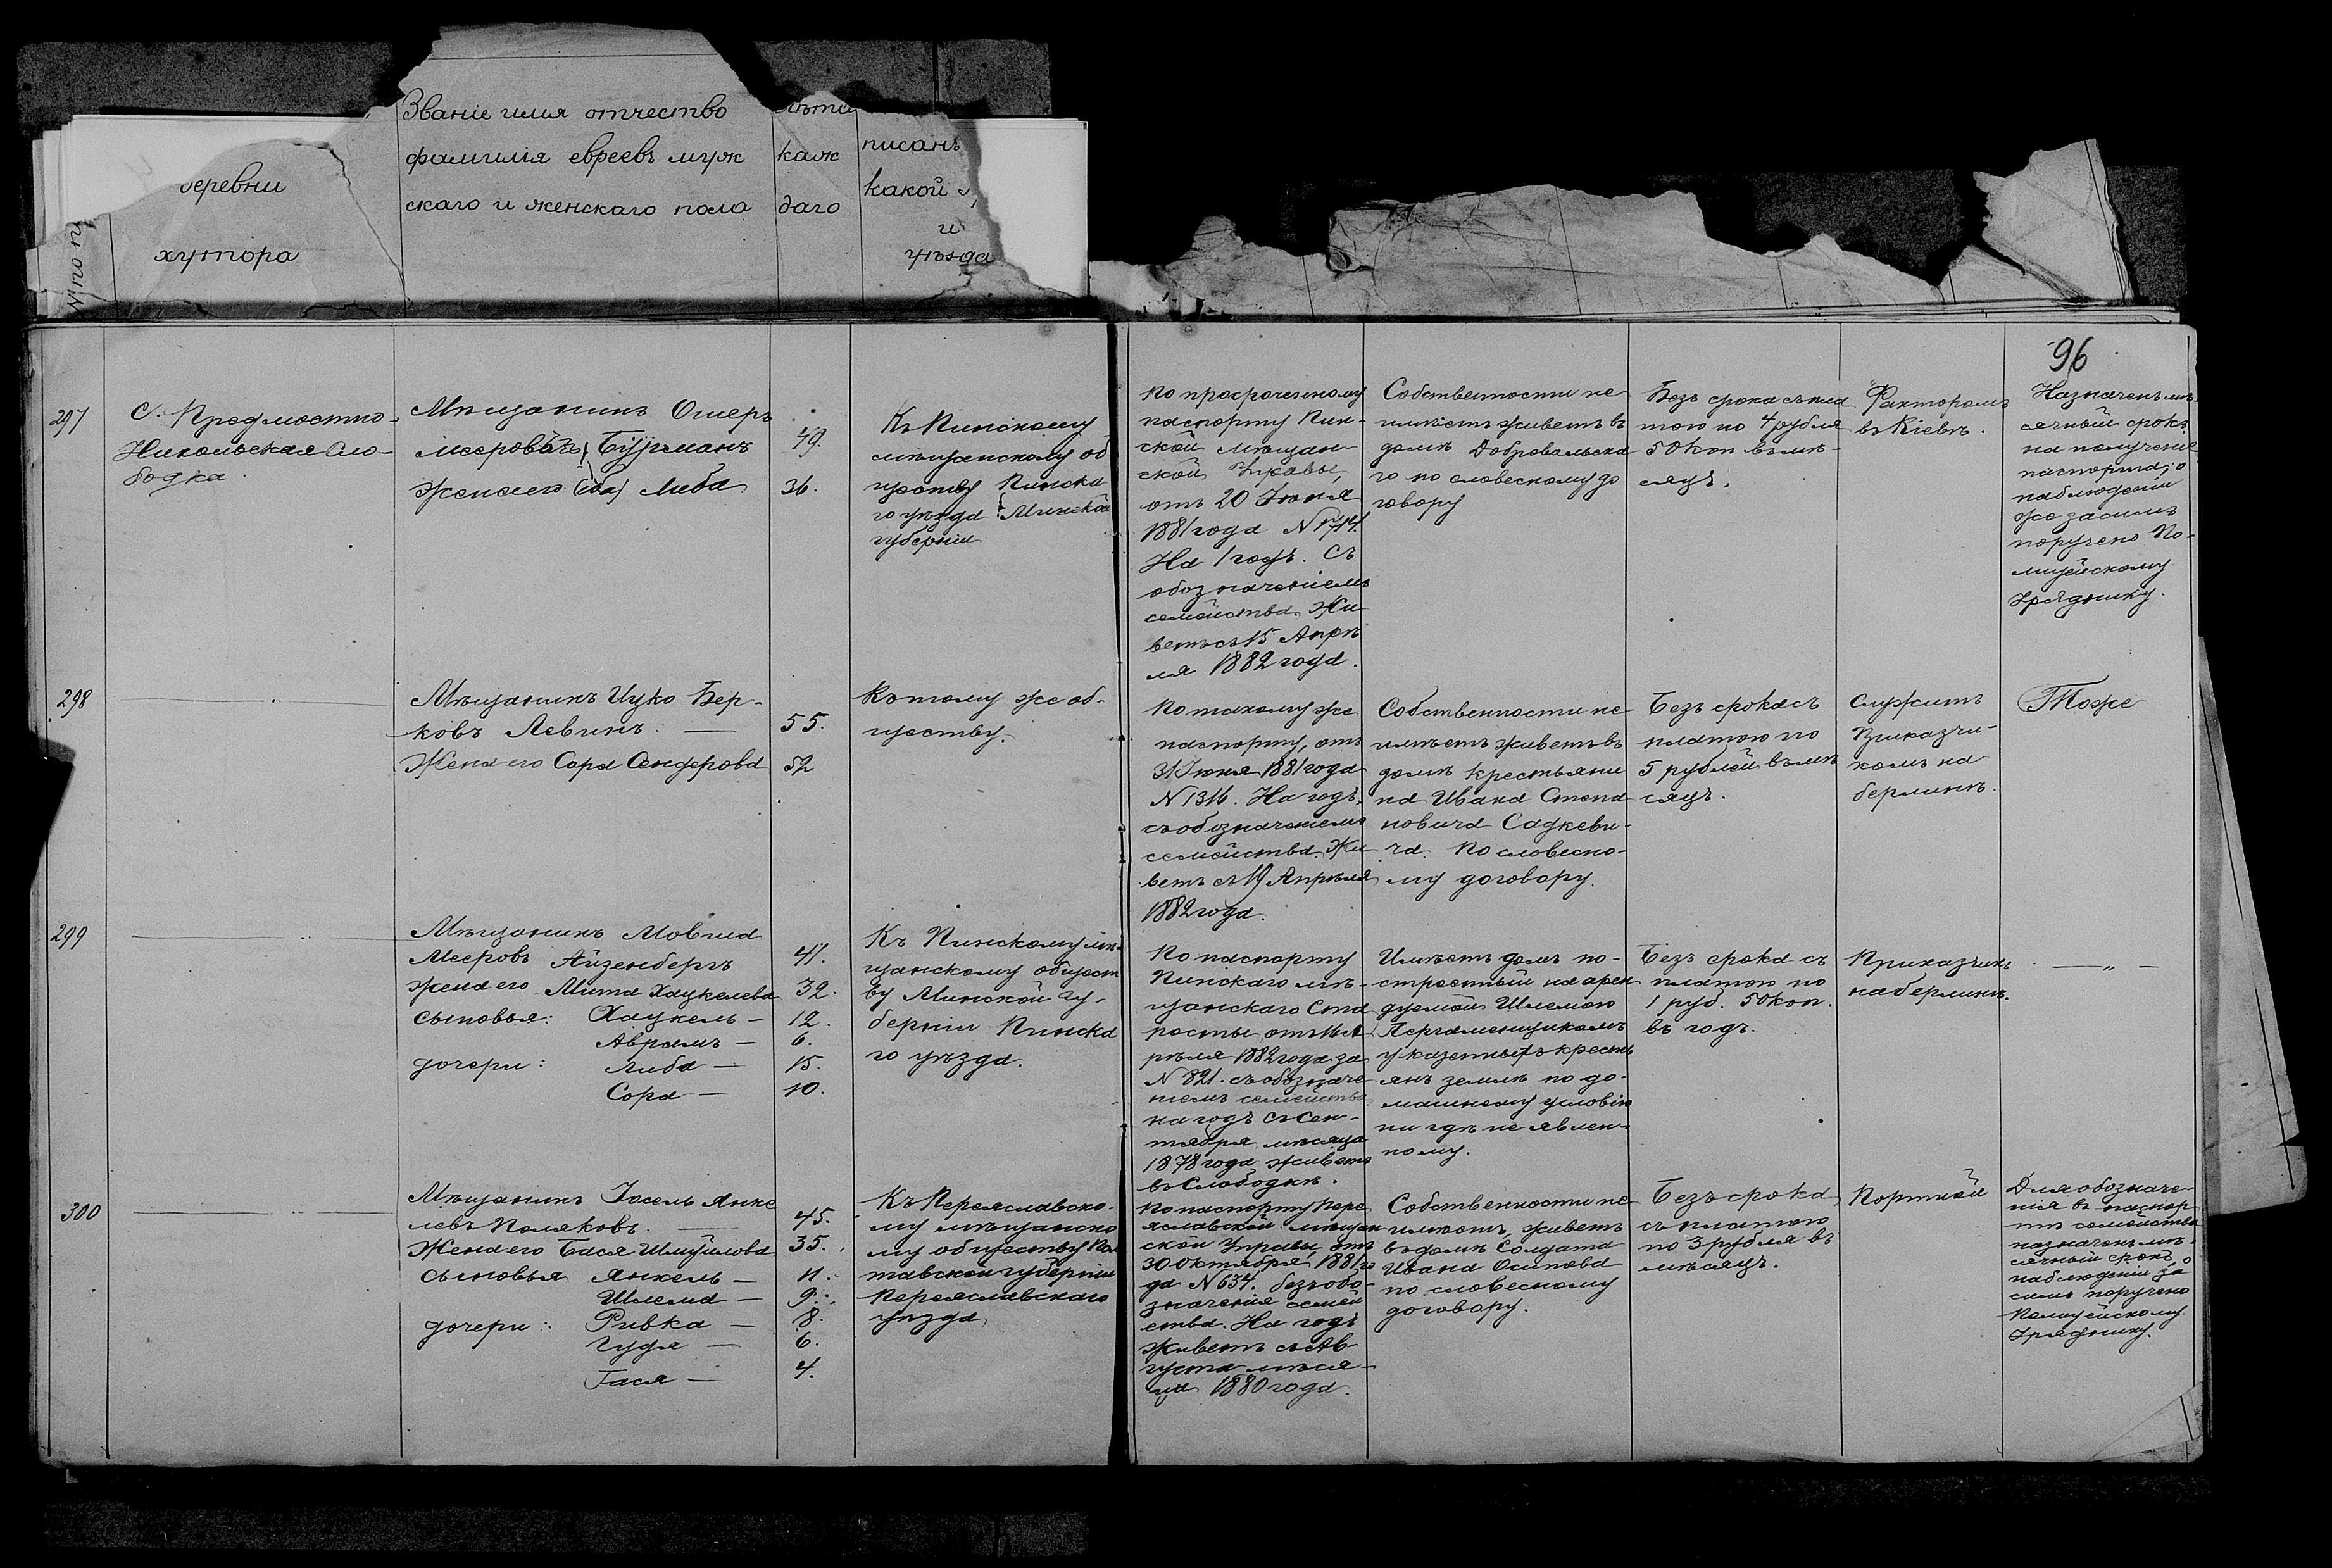 Званіе имя отчество
фамилія евреевъ муж
скаго и женскаго пола
лѣта
каж
даго
писанъ
какой
и
уѣзда
деревни
хутора
№ по
96
297
С. Предмостно-
Никольская Сло-
бодка.
Мѣщанинъ Ошеръ
Мееровъ Бургманъ
Жена его Либа
49.
36.
Къ Пинскому
мѣщанскому об
ществу Пинска
го уѣзда Минской
губерніи
По просроченному
паспорту Пин-
ской мѣщан-
ской Управы,
отъ 20 Іюня
1881 года N 1714.
На 1 годъ. Съ
обозначеніемъ
семейства. Жи
ветъ съ 15 Апрѣ
ля 1882 года.
Собственности не
имѣетъ живетъ въ
домѣ Добровольска
го по словесному до
говору
Безъ срока съ пла
тою по 4 рубля
50 коп въ мѣ-
сяцъ.
Факторомъ
въ Кіевѣ.
Назначенъ мѣ-
сячный срокъ
на полученіе
паспорта; о
наблюденіи
же за симъ
поручено По-
лицейскому
Уряднику.
298
Мѣщанинъ Ицко Бер-
ковъ Левинъ. —
Жена его Сора Сендерова
55.
52
Къ тому же об-
ществу.
По такому же
паспорту, отъ
31 Іюня 1881 года
N 1316. На годъ,
съ обозначеніемъ
семейства. Жи
ветъ съ 19 Апрѣля
1882 года.
Собственности не
имѣетъ живетъ въ
домѣ крестьяни
на Ивана Степа
новича Садкеви-
ча. По словесно-
му договору.
Безъ срока съ
платою по
5 рублей въ мѣ
сяцъ.
Служитъ
Приказчи-
комъ на
берлинѣ.
Тоже
299
Мѣщанинъ Мовша
Мееровъ Айзенбергъ
жена его Мита Хацкелева
сыновья: Хацкель —
Аврамъ —
дочери: Либа —
Сора —
41.
32.
12.
6.
15.
10.
Къ Пинскому мѣ-
щанскому общест
ву Минской гу-
берніи Пинска
го уѣзда.
По паспорту
Пинскаго мѣ-
щанскаго Ста
росты отъ 16 Ап
рѣля 1882 года за
N 821. съ обозначе
ніемъ семейства
на годъ съ Сен-
тября мѣсяца
1878 года живетъ
въ Слободкѣ.
Имѣетъ домъ по-
строенный на арен
дуемой Шлемою
Пергаменщикомъ
у казенныхъ кресть
янъ землѣ по до-
машнему условію
ни гдѣ не явлен-
ному.
Безъ срока съ
платою по
1 руб. 50 коп.
въ годъ.
Приказчикъ
на берлинѣ.
— „ —
300
Мѣщанинъ Іосель Янке
левъ Поляковъ. —
Жена его Бася Шмуйлова
сыновья Янкель —
Шлема —
дочери: Ривка —
Гудя —
Гася —
45.
35.
11.
9.
8.
6.
4.
Къ Переяславско-
му мѣщанско
му обществу Пол
тавской губерніи
Переяславскаго
уѣзда
По паспорту Пере
яславской мѣщан
ской Управы отъ
30 Октября 1881 го
да N 634. безъ обо-
значенія семей
ства. На годъ
Живетъ съ Ав-
густа мѣся-
ца 1880 года.
Собственности не
имѣетъ, живетъ
въ домѣ Солдата
Ивана Осипова
по словесному
договору.
Безъ срока
съ платою
по 3 рубля въ
мѣсяцъ.
Портной
Для обозначе-
нія въ паспор
тѣ семейства
назначенъ мѣ-
сячный срокъ, о
наблюденіи за
симъ поручено
Полицейскому
Уряднику.